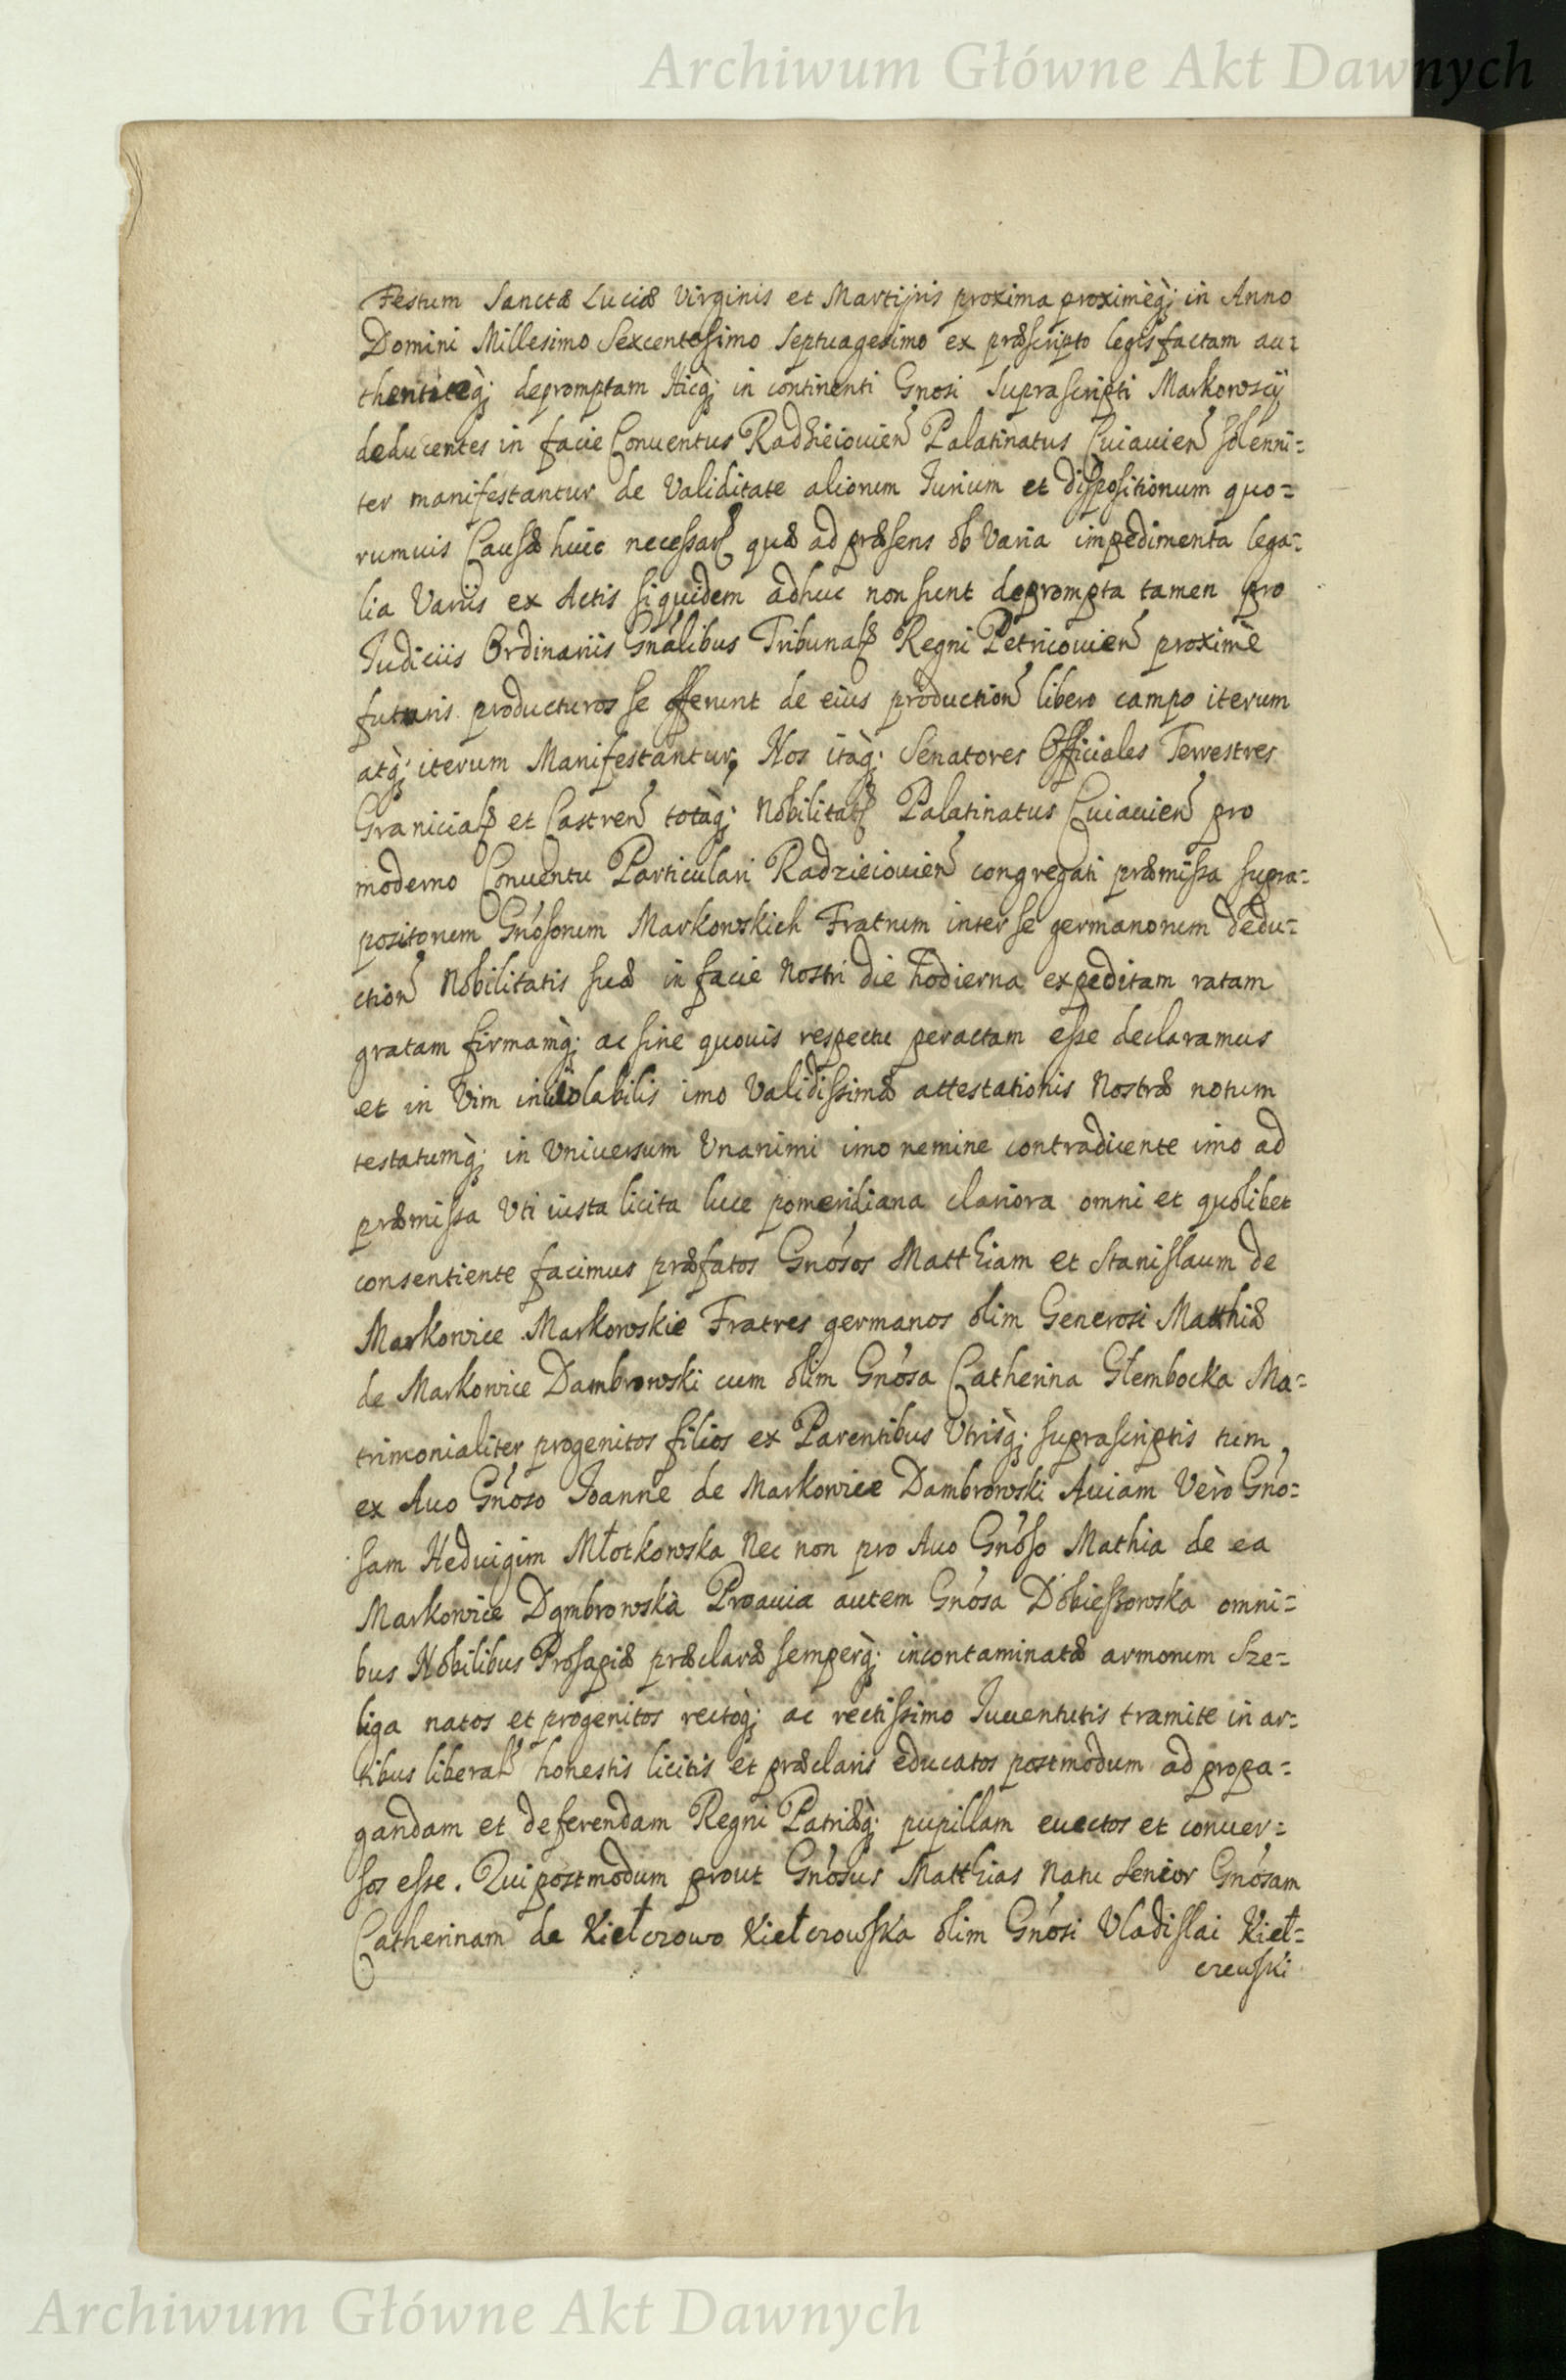 Archiwum Główne Akt Dawnych
Festum Sanctæ Luciæ Virginis et Martijris proxima proximèq; in Anno
Domini Millesimo Sexcentesimo Septuagesimo ex præscripto legis factam au=
thenticeq; depromptam Hicq; in continenti Gnosi Suprascripti Markowscÿ
deducentes in facie Conuentus Radzieiouien̄ Palatinatus Cuiauien̄ solenni=
ter manifestantur de Validitate aliorum Iurium et dispositionum quo=
rumuis Causæ huic necessar̄ quæ ad præsens ob Varia impedimenta lega=
lia Variis ex Actis siquidem adhuc non sunt deprompta tamen pro
Iudiciis Ordinariis Gnálibus Tribunal̄ Regni Petricouien̄ proximè
futuris producturos se offerunt de eius production̄ libero campo iterum
atq; iterum Manifestantur, Nos itaq; Senatores Officiales Terrestres
Granicial̄ et Castren̄ totaq; Nobilitas Palatinatus Cuiauien̄ pro
moderno Conuentu Particulari Radzieiouien̄ congregati præmissa supra=
positorum Gnósorum Markowskich Fratrum inter se germanorum dedu=
ction̄ Nobilitatis suæ in facie Nostri die hodierna expeditam ratam
gratam firmamq; ac sine quouis respectu peractam esse declaramus
et in Vim inuiolabilis imo Validissimæ attestationis Nostræ notum
testatumq; in Vniuersum Vnanimi imo nemine contradicente imo ad
præmissa Vti iusta licita luce pomeridiana clariora omni et quolibet
consentiente facimus præfatos Gnósos Matthiam et Stanislaum de
Markowice Markowskie Fratres germanos olim Generosi Matthiæ
de Markowice Dambrowski cum olim Gnósa Catherina Głembocka Ma=
trimonialiter progenitos filios ex Parentibus Vtrisq; suprascriptis tum
ex Auo Gnóso Ioanne de Markowice Dambrowski Auiam Vèro Gnó=
sam Heduigim Młotkowska Nec non pro Auo Gnóso Mathia de ea
Markowice Dąmbrowska Proauia autem Gnósa Dobiessowska omni=
bus Nobilibus Prosapiæ præclaræ semperq; incontaminatæ armorum Sze=
liga natos et progenitos rectoq; ac rectissimo Iuuentutis tramite in ar=
tibus liberal̄ honestis licitis et præclaris educatos postmodum ad propa=
gandam et deferendam Regni Patriæq; pupillam euectos et conuer=
sos esse. Qui postmodum prout Gnósus Matthias Natu Senior Gnósam
Catherinam de Kiełczowo Kiełczowska olim Gnósi Vladislai Kieł=
czewski
Archiwum Główne Akt Dawnych